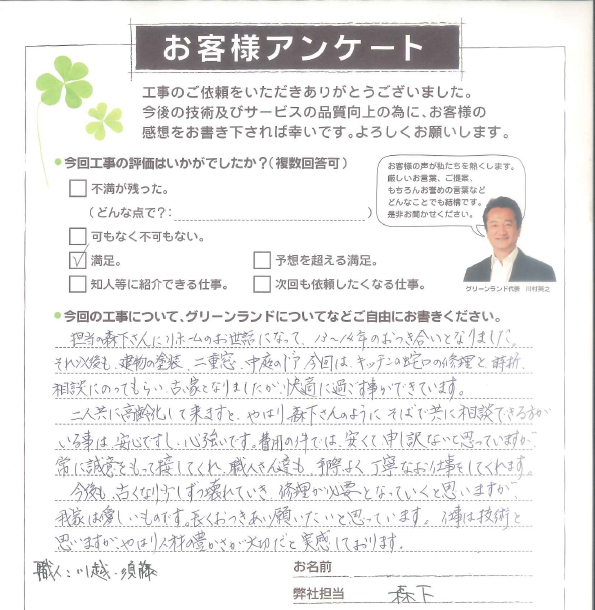 お客様アンケート
工事のご依頼をいただきありがとうございました。
今後の技術及びサービスの品質向上の為に、お客様の
感想をお書き下されば幸いです。よろしくお願いします。
●今回工事の評価はいかがでしたか？（複数回答可）
お客様の声が私たちを熱くします。
厳しいお言葉、ご提案、
もちろんお誉めの言葉など
どんなことでも結構です。
是非お聞かせください。
不満が残った。
（どんな点で？： ）
可もなく不可もない。
満足。
予想を超える満足。
知人等に紹介できる仕事。
次回も依頼したくなる仕事。
グリーンランド代表 川村英之
●今回の工事について、グリーンランドについてなどご自由にお書きください。
担当の森下さんにリホームのお世話になって、13〜14年のおつき合いとなりました。
それ以後も、建物の塗装、二重窓、中庭のドア今回は、キッチンの蛇口の修理と、時折、
相談にのってもらい、古い家となりましたが、快適に過ごす事ができています。
二人共に高齢化して来ますと、やはり森下さんのように そばで共に相談できる方が
いる事は、安心ですし、心強いです。費用の件では、安くて申し訳ないと思っていますが
常に誠意をもって接してくれ、職人さん達も、手際よく丁寧なお仕事をしてくれます。
今後も、古くなり少しずつ壊れていき、修理が必要となっていくと思いますが
我家は愛しいものです。長くおつきあい願いたいと思っています。仕事は技術と
思いますが、やはり人材の豊かさが大切だと実感しております。
職人：川越・須藤
お名前
弊社担当 森下